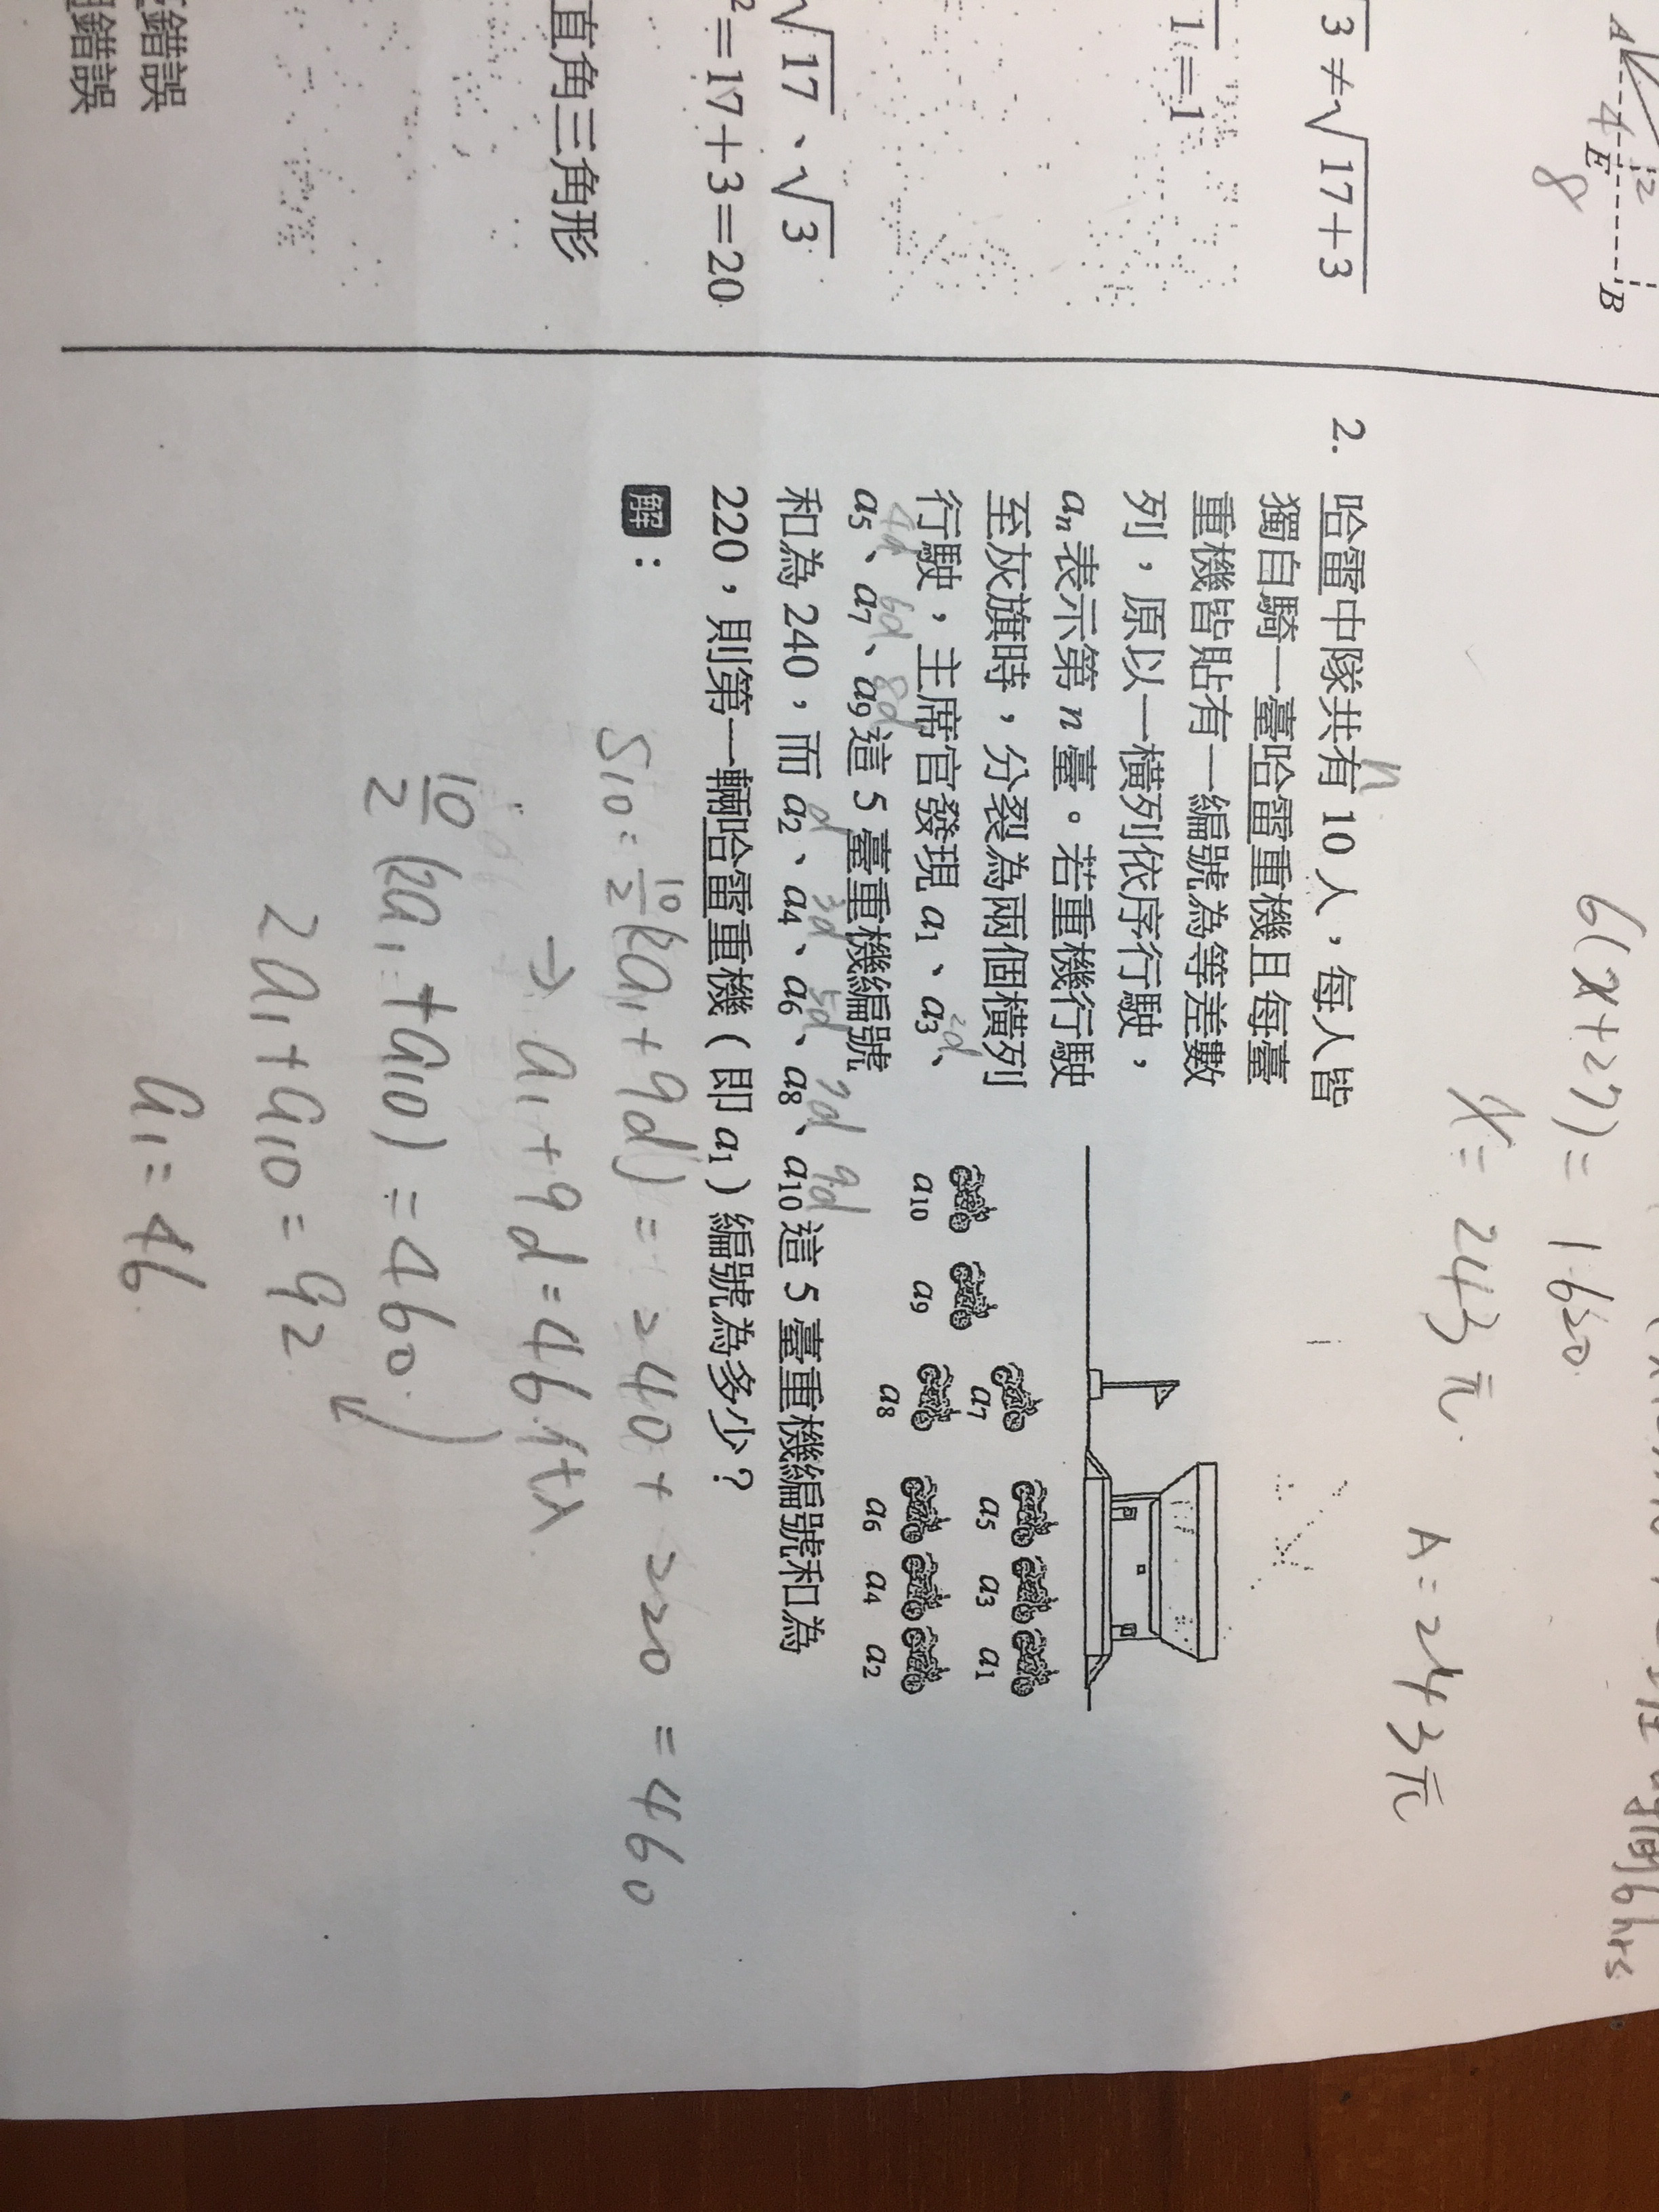 A 4 E 12 B
8
3 ≠ √17+3
1 = 1
√17、√3
² = 17 + 3 = 20
直角三角形
錯誤
錯誤
6(x+27) = 1620
x = 243元.
A = 243元
時間6hrs
2. 哈雷中隊共有 10 人，每人皆
n
獨自騎一臺哈雷重機且每臺
重機皆貼有一編號為等差數
列，原以一橫列依序行駛，
aₙ 表示第 n 臺。若重機行駛
至灰旗時，分裂為兩個橫列
行駛，主席官發現 a₁、a₃、
2d
a₅、a₇、a₉ 這 5 臺重機編號
4d 6d 8d
和為 240，而 a₂、a₄、a₆、a₈、a₁₀ 這 5 臺重機編號和為
d 3d 5d 7d 9d
220，則第一輛哈雷重機（即 a₁）編號為多少？
a₇
a₅ a₃ a₁
a₁₀ a₉ a₈ a₆ a₄ a₂
解：
S₁₀ = 10/2 (2a₁ + 9d) = 240 + 220 = 460
→ a₁ + 9d = 46代入
10/2 (2a₁ + a₁₀) = 460
2a₁ + a₁₀ = 92
a₁ = 46